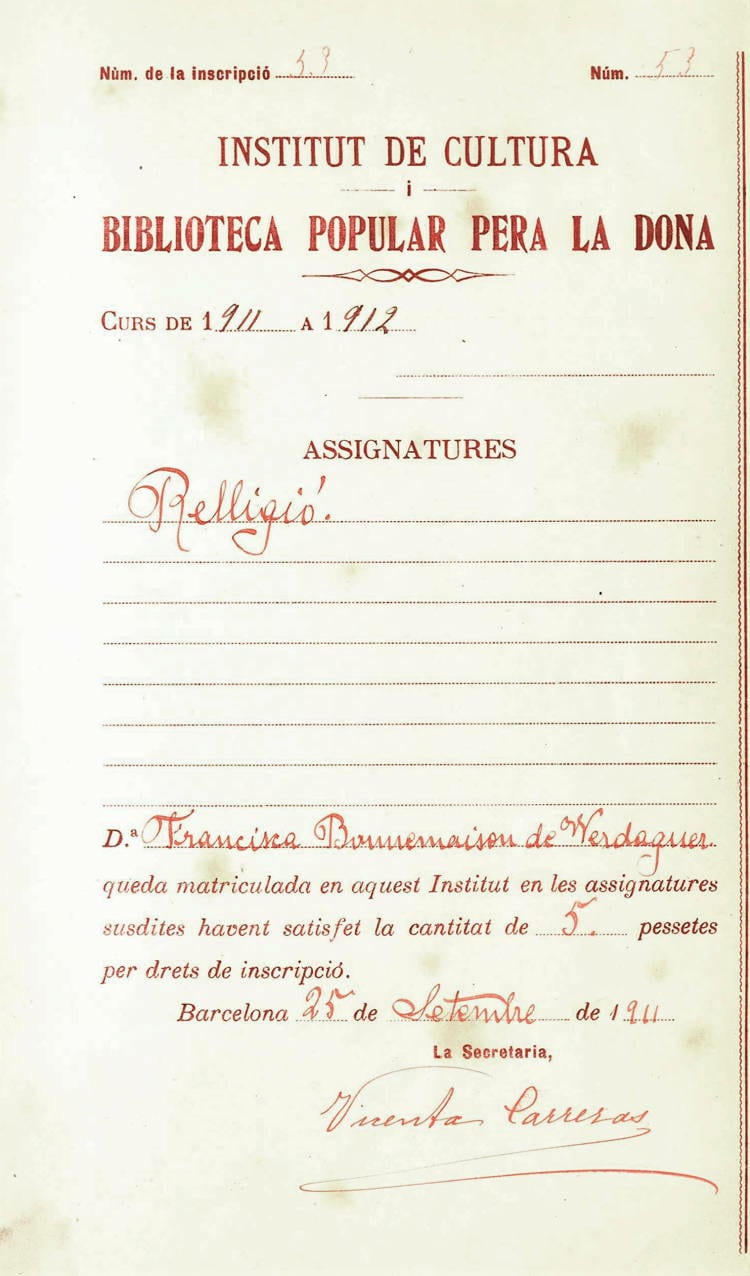 Núm. de la inscripció 53 Núm. 53
INSTITUT DE CULTURA
i
BIBLIOTECA POPULAR PERA LA DONA
CURS DE 1911 A 1912
ASSIGNATURES
Relligió.
D.ª Francisca Bonnemaison de Verdaguer.
queda matriculada en aquest Institut en les assignatures
susdites havent satisfet la cantitat de 5. pessetes
per drets de inscripció.
Barcelona 25 de Setembre de 1911
La Secretaria,
Vicenta Carreras